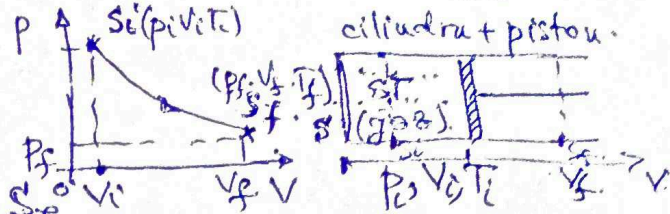 p
Si(piViTi)
(pf, Vf, Tf)
Sf
pf
0
Vi
Vf
V
cilindru + piston.
S.T.
(gaz)
pi, Vi, Ti
Vf
V